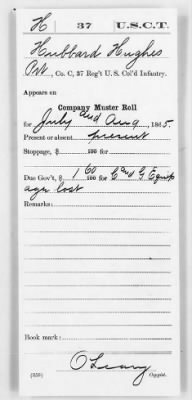 H 37 U.S.C.T.
Hubbard Hughes
Pvt, Co. C, 37 Reg't U. S. Col'd Infantry.
Appears on
Company Muster Roll
for July and Aug, 1865.
Present or absent present
Stoppage, $ 100 for
Due Gov't, $ 1 60/100 for C and G Equip
age lost
Remarks:
Book mark:
O'Leary
(359) Copyist.